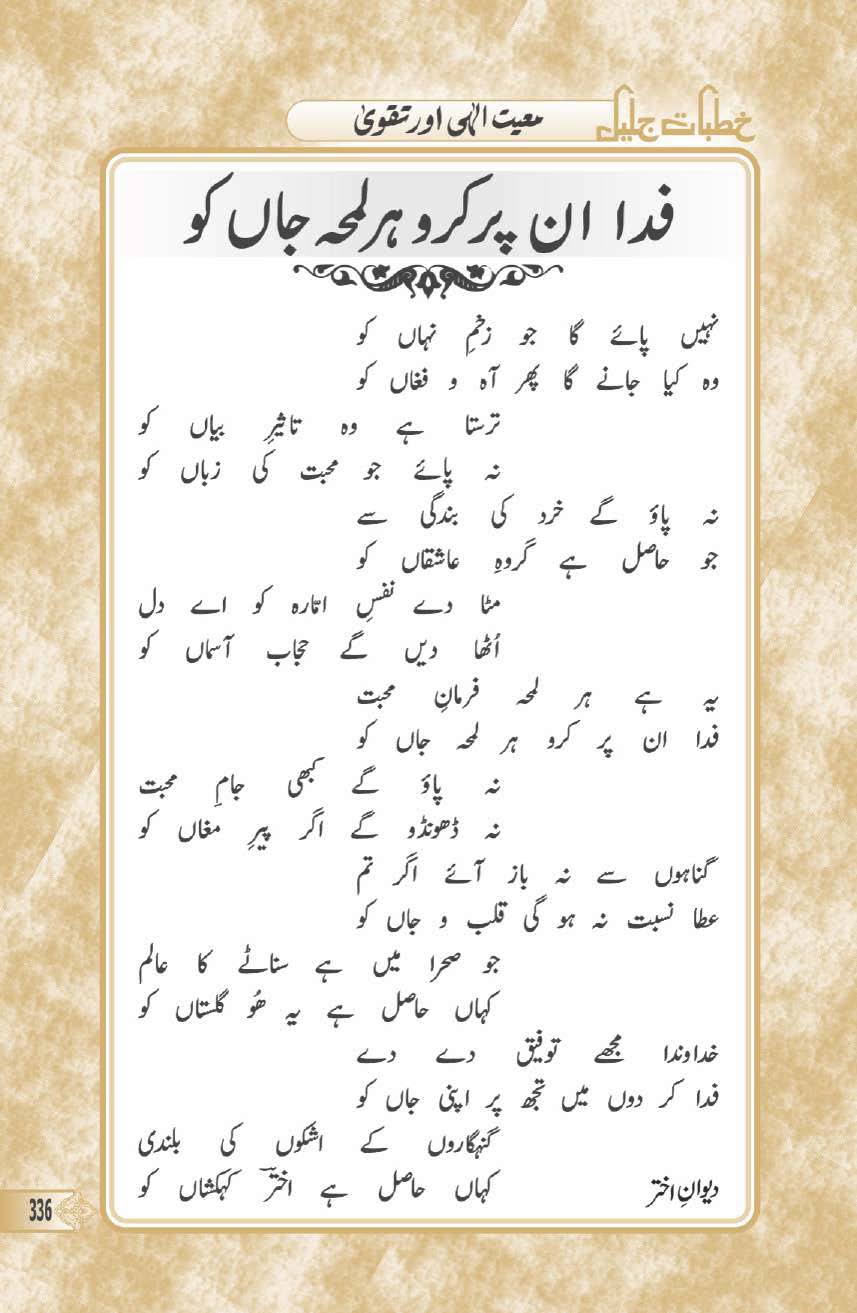 خطبات جلیل
معیت الٰہی اور تقویٰ
فدا ان پر کرو ہر لمحہ جاں کو
نہیں پائے گا جو زخمِ نہاں کو
وہ کیا جانے گا پھر آہ و فغاں کو
ترستا ہے وہ تاثیرِ بیاں کو
نہ پائے جو محبت کی زباں کو
نہ پاؤ گے خرد کی بندگی سے
جو حاصل ہے گروہِ عاشقاں کو
مٹا دے نفسِ امّارہ کو اے دل
اُٹھا دیں گے حجاب آسماں کو
یہ ہے ہر لمحہ فرمانِ محبت
فدا ان پر کرو ہر لمحہ جاں کو
نہ پاؤ گے کبھی جامِ محبت
نہ ڈھونڈو گے اگر پیرِ مغاں کو
گناہوں سے نہ باز آئے اگر تم
عطا نسبت نہ ہو گی قلب و جاں کو
جو صحرا میں ہے سناٹے کا عالم
کہاں حاصل ہے یہ ھُو گلستاں کو
خداوندا مجھے توفیق دے دے
فدا کر دوں میں تجھ پر اپنی جاں کو
گنہگاروں کے اشکوں کی بلندی
کہاں حاصل ہے اخترؔ کہکشاں کو
دیوانِ اختر
336